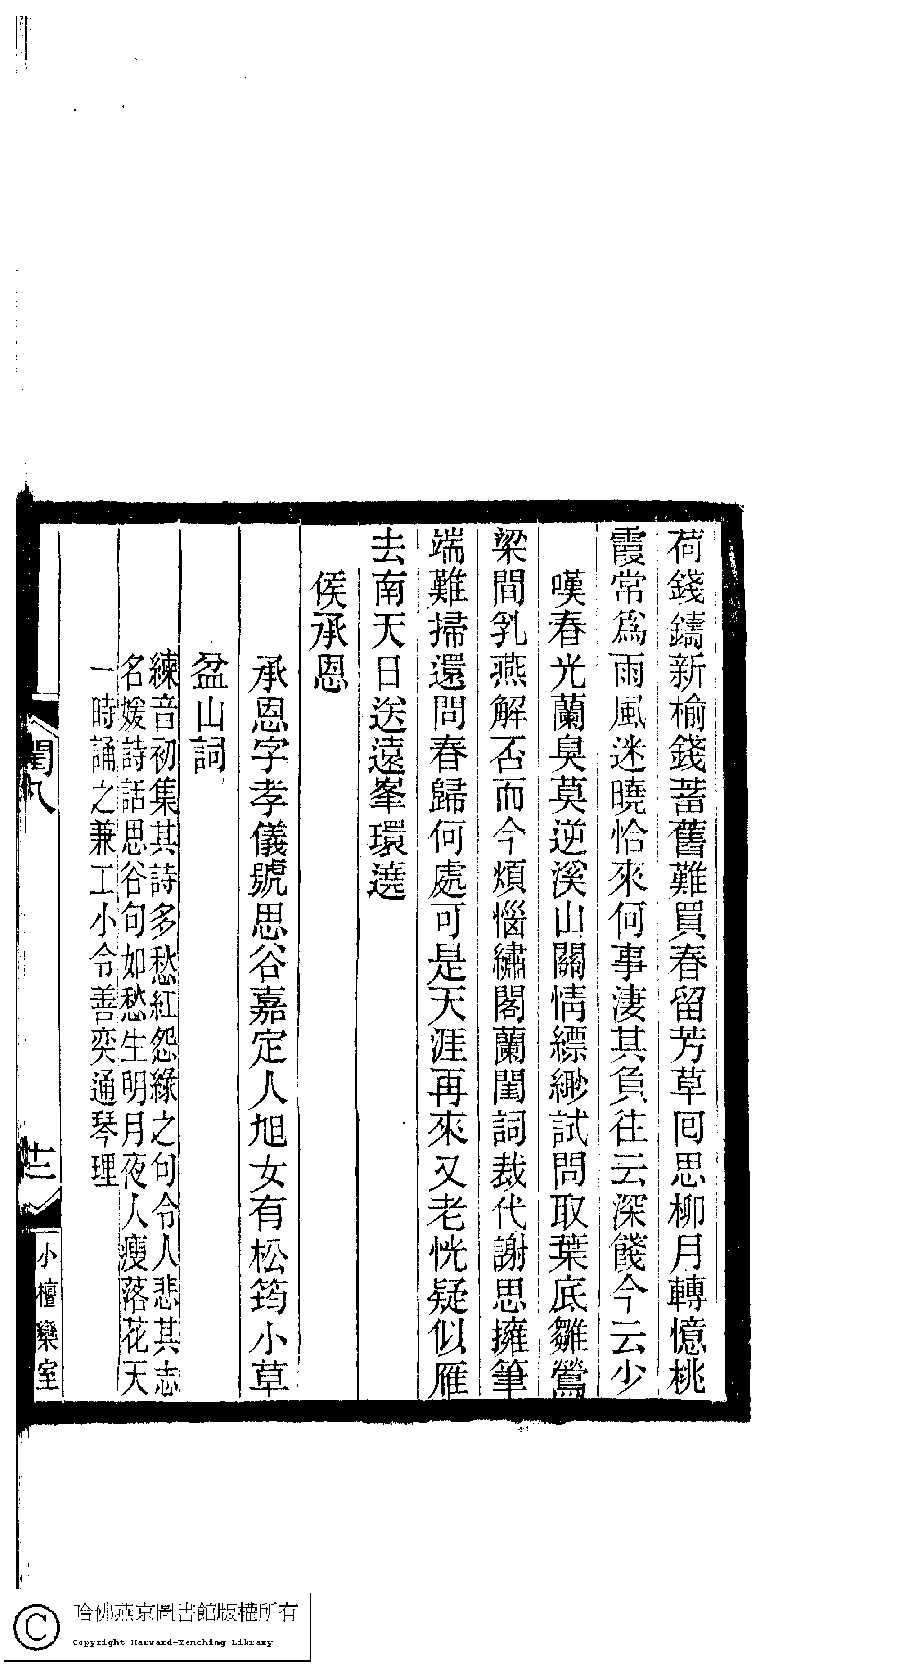 荷錢鑄新榆錢蓄舊難買春留芳草囘思柳月轉憶桃
霞常爲雨風迷曉恰來何事淒其負往云深餞今云少
嘆春光蘭臭莫逆溪山關情縹緲試問取葉底雛鶯
梁間乳燕解否而今煩惱繡閣蘭閨詞裁代謝思擁筆
端難掃還問春歸何處可是天涯再來又老恍疑似雁
去南天日送遠峯環遶
侯承恩
承恩字孝儀號思谷嘉定人旭女有松筠小草
盆山詞
練音初集其詩多愁紅怨綠之句令人悲其志
名媛詩話思谷句如愁生明月夜人瘦落花天
一時誦之兼工小令善奕通琴理
閏八
十二
小檀欒室
哈佛燕京圖書館版權所有
Copyright Harvard-Yenching Library